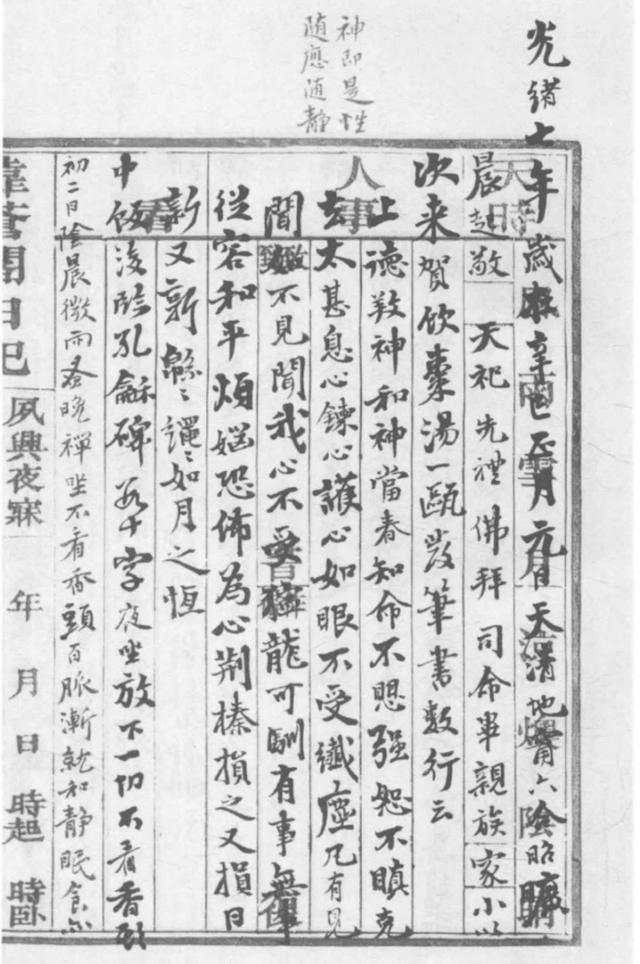 神即是性
随應随静
光緒七年歲在辛巳正月元日天清地甯六陰昭曠
晨起敬天祀先禮佛拜司命畢親族家小以
次来賀飲棗湯一甌發筆書数行云
上德敦神和神當春知命不思强恕不瞋克
去太甚息心鍊心護心如眼不受纖塵凡有見
聞如不見聞我心不受獰龍可馴有事無事
從容和平煩惱恐怖為心荆榛損之又損日
新又新緜緜繩繩如月之恆
中飯後臨孔龢碑数十字夜坐放下一切不看香頭
初二日陰晨微雨蚤晚禪坐不看香頭百脈漸就和静眠食亦
韋菴閒日記 夙興夜寐 年 月 日 時起 時卧
天時
人事